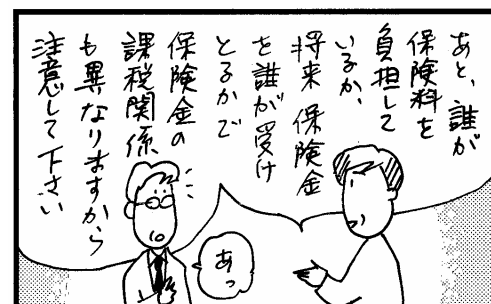 あと、誰が
保険料を
負担して
いるか、
将来 保険金
を誰が受け
とるかで
保険金の
課税関係
も異なりますから
注意して下さい
あっ